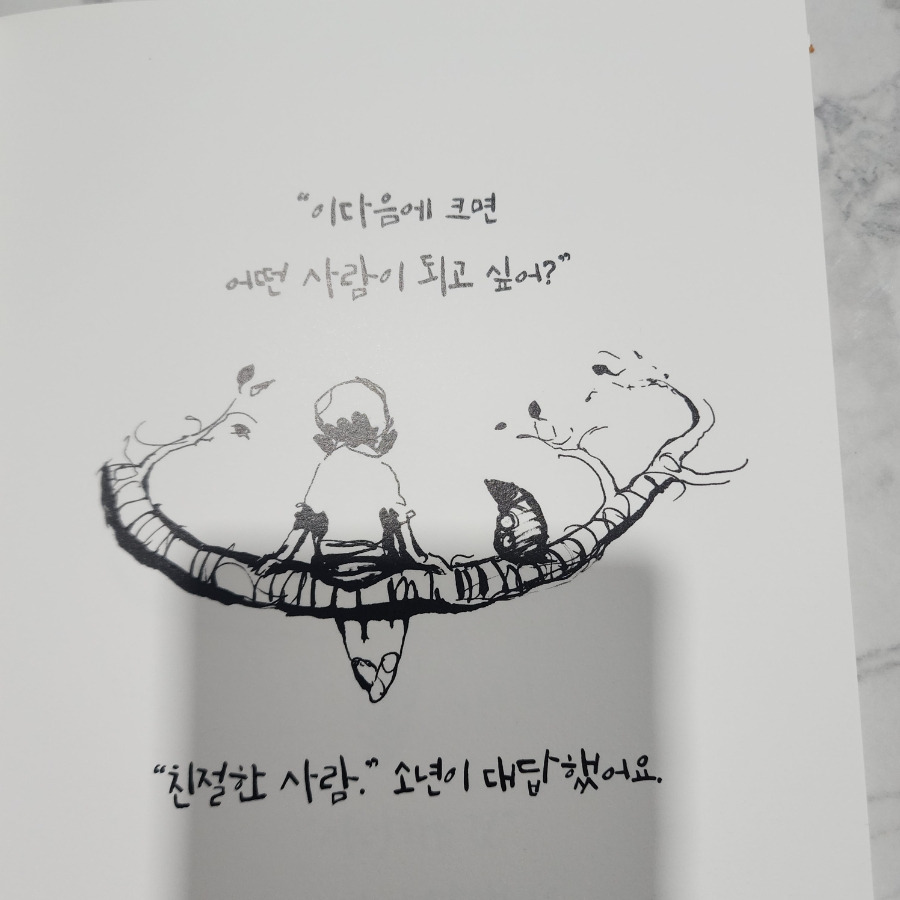 “이다음에 크면
어떤 사람이 되고 싶어?”
“친절한 사람.” 소년이 대답했어요.